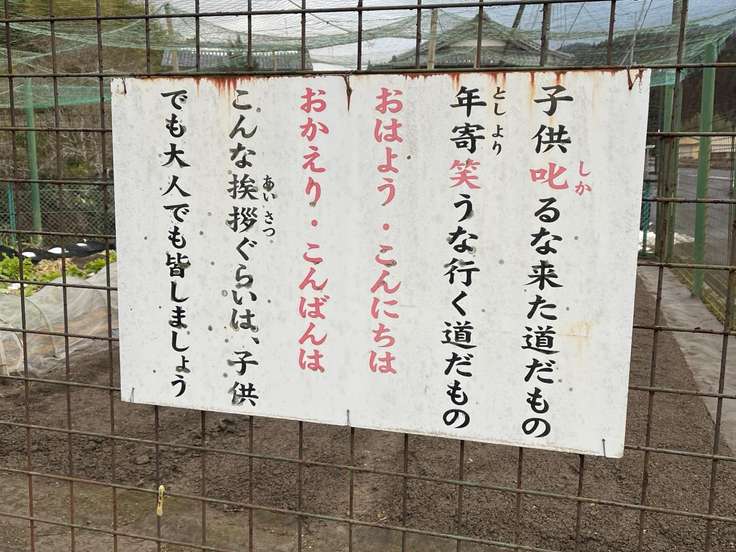 子供叱るな来た道だもの
年寄笑うな行く道だもの
おはよう・こんにちは
おかえり・こんばんは
こんな挨拶ぐらいは、子供
でも大人でも皆しましょう
しか
とし より
あい さつ